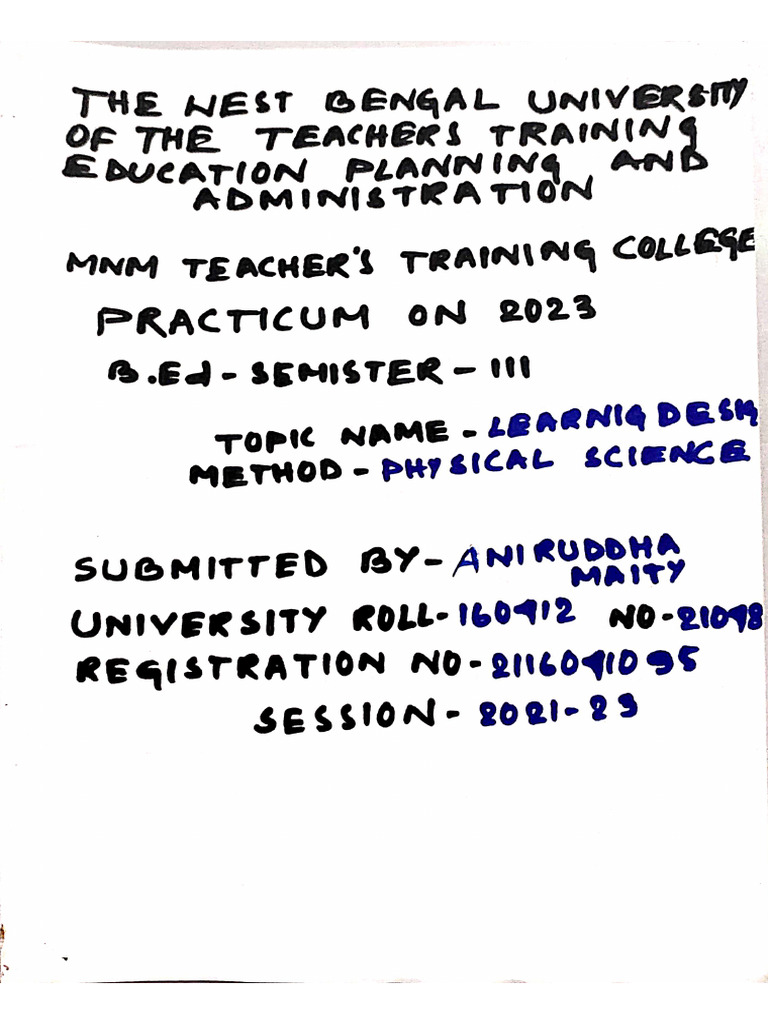 THE WEST BENGAL UNIVERSITY
OF THE TEACHERS TRAINING
EDUCATION PLANNING AND
ADMINISTRATION
MNM TEACHER'S TRAINING COLLEGE
PRACTICUM ON 2023
B.Ed - SEMISTER - III
TOPIC NAME - LEARNIG DESIG
METHOD - PHYSICAL SCIENCE
SUBMITTED BY - ANIRUDDHA
MAITY
UNIVERSITY ROLL - 160912 NO - 21098
REGISTRATION NO - 2116091095
SESSION - 2021-23